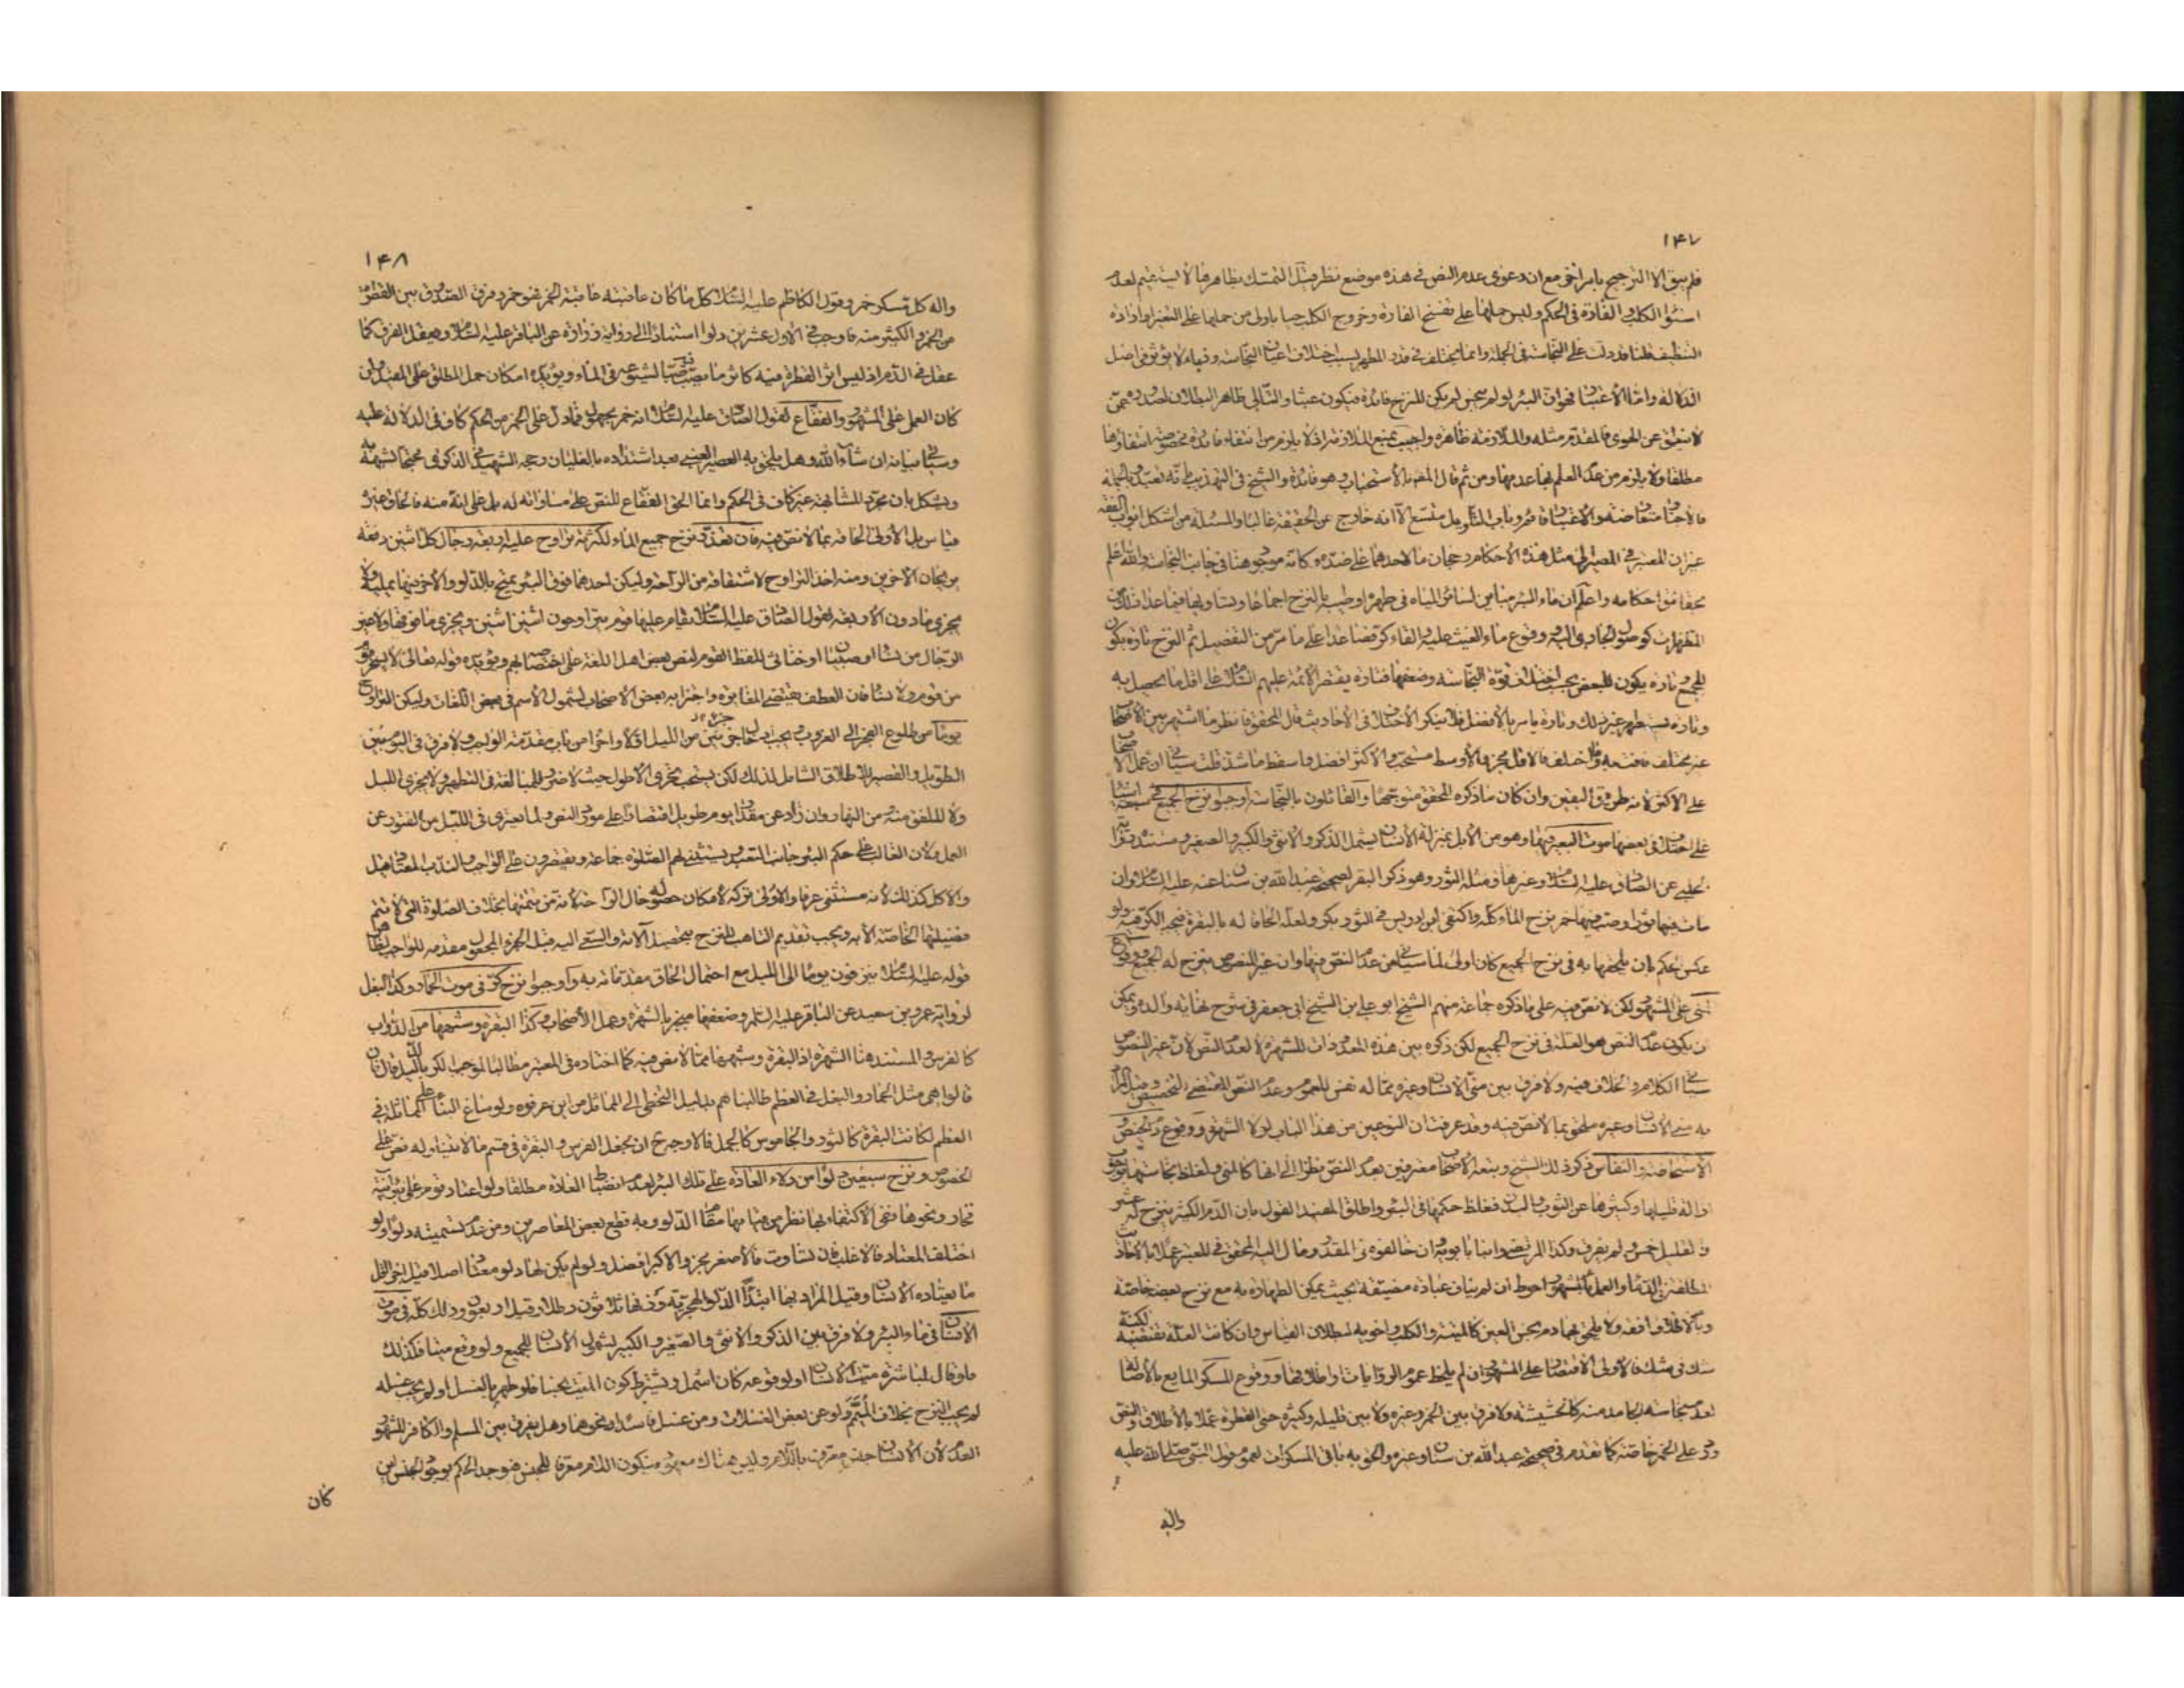 ۱۴۷
فلم يبق الا الترجيح بامر آخر مع ان دعوى عدم النص فى هذه موضع نظر فيقال التمسك بظاهرها لا يستقيم لعدم
استواء الكلب و الفأرة فى الحكم وليس حملها على تفسخ الفارة وخروج الكلب حيا باولى من حملها على التغير او ارادة
التنظيف قلنا قد دلت على النجاسة فى الجملة وانما يختلف فى قدر المطهر بسبب اختلاف اعيان النجاسة وقيامه لا يؤثر فى اصل
الدلالة واما الاعتبار فهو ان البئر لو لم ينجس لم يكن للنزح فائدة فيكون عبثا والتالى ظاهر البطلان لصدوره ممن
لا ينطق عن الهوى فالمقدم مثله والملازمة ظاهرة واجيب بمنع الملازمة اذ لا يلزم من انتفاء فائدة مخصوصة انتفاؤها
مطلقا ولا يلزم من عدم العلم بها عدمها ومن ثم قال المصنف بالاستحباب وهو فائدة والشيخ فى التهذيب على انه تعبد وبالجملة
فالاخبار متعارضة والاعتبار قائم وباب التأويل متسع الا انه خارج عن الحقيقة غالبا والمسئلة من اشكل ابواب الفقه
غير ان المصير فى مثل هذه الاحكام رجحان ما لاحدهما على ضده وكانه موجود هنا فى جانب النجاسة والله اعلم
بحقائق احكامه واعلم ان ماء البئر يباين لسائر المياه فى طهره وطيبه بالنزح اجماعا ويساويها فيما عدا ذلك من
المطهرات كوصول الجارى اليه و وقوع ماء الغيث عليه والقاء كر فصاعدا على ما مر من التفصيل ثم النزح تارة يكون
للجميع وتارة يكون للبعض بحسب اختلاف قوة النجاسة وضعفها فتارة يقتصر الائمة عليهم السلام على اقل ما يحصل به
وتارة يستظهر بغير ذلك وتارة يامر بالافضل فلا ينكر الاختلاف فى الاحاديث قال المحقق فانظر ما اشتهر بين الاصحاب
غير مختلف فافت به وما اختلف فالاقل مجز والاوسط مستحب والاكثر افضل واسقط ما شذ قلت سيأتى ان عمل الاصحاب
على الاكثر لانه طريق اليقين وان كان ما ذكره المحقق متوجها والقائلون بالنجاسة اوجبوا نزح الجميع فى سبعة اشياء
على اختلاف فى بعضها موت البعير فيها وهو من الابل بمنزلة الانسان يشمل الذكر والانثى والكبير والصغير ومستنده رواية
الحلبى عن الصادق عليه السلام وغيرها ومثله الثور وهو ذكر البقر لصحيحة عبد الله بن سنان عنه عليه السلام وان
مات فيها ثور او صب فيها خمر نزح الماء كله واكتفى ابن ادريس فى الثور بكر ولعله الحاقا له بالبقرة فيجب الكر فيه ولو
عكس الحكم بان يلحقها به فى نزح الجميع كان اولى لما سيأتى من عدم النص فيها وان غير المنصوص ينزح له الجميع ووقوع
المنى على المشهور لكن لا نص فيه على ما ذكره جماعة منهم الشيخ ابو على بن الشيخ ابى جعفر فى شرح نهاية والده ويمكن
ان يكون عدم النص هو العلة فى نزح الجميع لكن ذكره بين هذه المعدودات للشهرة لا لعدم النص لان غير المنصوص
سيأتى الكلام والخلاف فيه ولا فرق بين منى الانسان وغيره مما له نفس للعموم وعدم النص المقتضى للتخصيص وقيل المراد
به منى الانسان وغيره ملحق بما لا نص فيه وقد عرفت ان النوعين من هذا الباب لولا الشهرة ووقوع دم الحيض و
الاستحاضة والنفاس ذكر ذلك الشيخ وتبعه الاصحاب معترفين بعدم النص نظرا الى انها كالمنى ولغلظ نجاستها بوجوب
ازالة قليلها وكثيرها عن الثوب والبدن فغلظ حكمها فى البئر واطلق المفيد القول بان الدم الكثير ينزح له عشر
والقليل خمس ولم يفرق وكذا المرتضى وابنا بابويه وان خالفوه فى المقدر ومال اليه المحقق فى المعتبر عملا بالاحاديث
المطلقة فى الدماء والعمل بالمشهور احوط ان لم يناف عبادة مضيقة بحيث يمكن الطهارة به مع نزح بعضه خاصة
وبالاقل وافقه ولا يلحق بها دم نجس العين كالميتة والكلب واخويه لبطلان القياس وان كانت العلة تقتضيه لكنه
شك فى شك فالاولى الاقتصار على المشهور ان لم يلحظ عموم الروايات واطلاقها ووقوع المسكر المايع بالاصالة
لعدم نجاسة الجامد منه كالحشيشة ولا فرق بين الخمر وغيره ولا بين قليله وكثيره حتى القطرة عملا بالاطلاق والنص
ورد على الخمر خاصة كما تقدم فى صحيحة عبد الله بن سنان وغيره والحق به باقى المسكرات لعموم قول النبى صلى الله عليه
واله
۱۴۸
واله كل مسكر خمر وقول الكاظم عليه السلام كل ما كان عاقبته عاقبة الخمر فهو خمر وفرق الصدوق بين القطرة
من الخمر و الكثير منه فاوجب فى الاول عشرين دلوا استنادا الى رواية زرارة عن الباقر عليه السلام وهيهنا الفرق كما
عقل فى الدم اذ ليس اثر القطرة فيه كاثر ما يصب فيه لشيوعه فى الماء ويؤيده امكان حمل المطلق على المقيد وان
كان العمل على المشهور والفقاع لقول الصادق عليه السلام انه خمر مجهول فما دل على الخمر من الحكم كاف فى الدلالة عليه
وسيأتى بيانه ان شاء الله وهل يلحق به العصير العنبى بعد اشتداده بالغليان رجحه الشهيد فى الذكرى محتجا بشبهه به
ويشكل بان مجرد المشابهة غير كاف فى الحكم وانما الحق الفقاع للنص على مساواته له بل على انه منه فالحاق غيره
قياس بل الاولى الحاقه بما لا نص فيه فان تعذر نزح جميع الماء لكثرته تراوح عليه اربعة رجال كل اثنين دفعة
يريحان الاخرين ومنه اخذ التراوح لاشتقاقه من الراحة وليكن احدهما فوق البئر يمتح بالدلو والآخر فيها يملئه ولا
يجزى ما دون الاربعة لقول الصادق عليه السلام يقام عليها قوم يتراوحون اثنين اثنين ويجزى ما فوقها ولا غير
الرجال من نساء او صبيان او خناثى للفظ القوم لنص بعض اهل اللغة على اختصاصه بهم ويؤيده قوله تعالى لا يسخر قوم
من قوم ولا نساء فان العطف يقتضى المغايرة واجتزا به بعض الاصحاب لشمول الاسم فى بعض اللغات وليكن التراوح
يوما من طلوع الفجر الى الغروب ويجب ادخال جزئين من الليل اولا واخرا من باب مقدمة الواجب ولا فرق فى اليوم بين
الطويل والقصير للاطلاق الشامل لذلك لكن يستحب تحرى الاطول حيث لا ضرر للمبالغة فى التطهير ولا يجزى الليل
ولا الملفق منه من النهار وان زاد عن مقدار يوم طويل اقتصارا على مورد النص ولما يعترى فى الليل من الفتور عن
العمل ولان الغالب على حكم البئر جانب التعبد ويستثنى لهم الصلوة جماعة ويقتصرون على الواجب والندب المعتاد قيل
والاكل كذلك لانه مستثنى عرفا والاولى تركه لامكان حصوله حال الراحة لانه من تتمتها بخلاف الصلوة التى لا تتم
فضيلتها الخاصة الا به ويجب تقديم التاهب للنزح بتحصيل الآلة والسعى اليه قبل الجزء المجعول مقدمة للواجب لظاهر
قوله عليه السلام ينزفون يوما الى الليل مع احتمال الحاق مقدماته به واوجبوا نزح كر فى موت الحمار وكذا البغل
لرواية عمرو بن سعيد عن الباقر عليه السلام وضعفها منجبر بالشهرة وعمل الاصحاب وكذا البقرة وشبهها من الدواب
كالفرس والمستند هنا الشهرة اذ البقرة وشبهها مما لا نص فيه كما اختاره فى المعتبر مطالبا لموجب الكر بالدليل فان
قالوا هى مثل الحمار والبغل فى العظم طالبناهم بدليل التخطى الى المماثل من اين عرفوه ولو ساغ البناء على المماثلة فى
العظم لكانت البقرة كالثور والجاموس كالجمل فالاوجه ان يجعل الفرس والبقرة فى قسم ما لا يتناوله نص على
الخصوص ونزح سبعين دلوا من دلاء العادة على تلك البئر لعدم انضباط العادة مطلقا ولو اعتاد قوم على بئر آنية
فخار ونحوها ففى الاكتفاء بها نظر من قيامها مقام الدلو وبه قطع بعض المعاصرين ومن عدم تسميته دلوا ولو
اختلف المعتاد فالاغلب فان تساوت فالاصغر مجز والاكبر افضل ولو لم يكن لها دلو معتاد اصلا قيل اجزا اقل
ما يعتاده الانسان وقيل المراد بها ابتداء الدلو الهجرية وزنها ثلاثون رطلا وقيل اربعون وذلك كله فى موت
الانسان فى ماء البئر ولا فرق بين الذكر والانثى والصغير و الكبير لشمول الانسان للجميع ولو وقع ميتا فكذلك
ولو قال لمباشرة ميت الانسان او لوقوعه كان اشمل ويشترط كون الميت نجسا فلو طهر بالغسل او لم يجب غسله
لم يجب النزح بخلاف الميمم ولو عن بعض الغسلات ومن غسل فاسدا ونحوهما وهل يفرق بين المسلم والكافر المشهور
العدم لان الانسان جنس معرف باللام وليس هناك معهود فيكون اللام معرفا للجنس فيوجد الحكم بوجود الجنس اين
كان